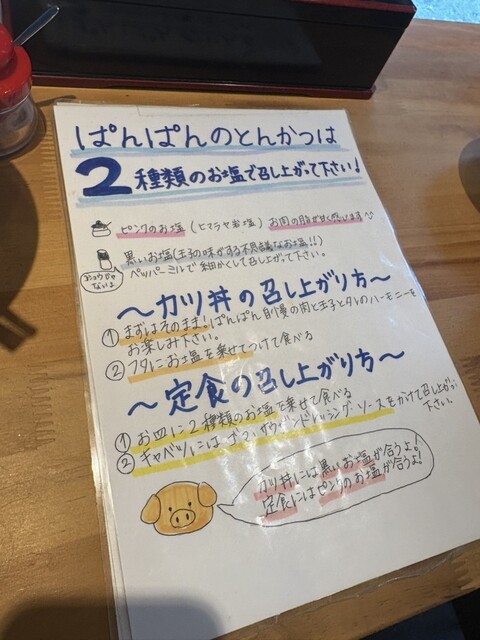 ぱんぱんのとんかつは
2種類のお塩で召し上がって下さい!
ピンクのお塩(ヒマラヤ岩塩)お肉の脂が甘く感じます
黒いお塩(玉子の味がする不思議なお塩!!)
ペッパーミルで細かくして召し上がって下さい。
コショウじゃ
ないよ
〜カツ丼の召し上がり方〜
①まずはそのまま!ぱんぱん自慢の肉と玉子とタレのハーモニーを
お楽しみ下さい。
②フタにお塩を乗せてつけて食べる
〜定食の召し上がり方〜
①お皿に2種類のお塩を乗せて食べる
②キャベツにはゴマ、サウザンドレッシング、ソースをかけて召し上がり
下さい。
カツ丼には黒いお塩が合うよ!
定食にはピンクのお塩が合うよ!